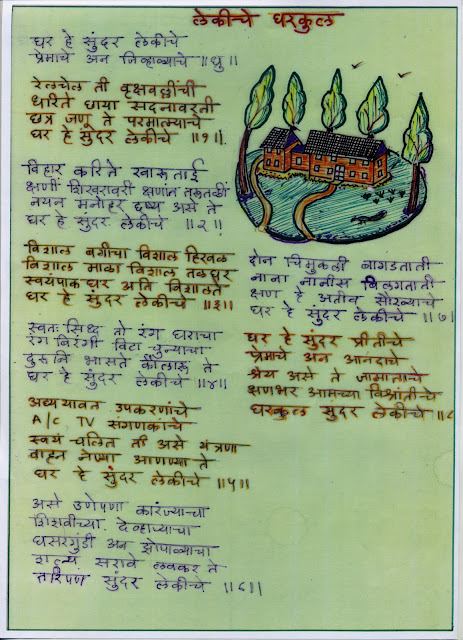 लेकीचे घरकुल
घर हे सुंदर लेकीचे
प्रेमाचे अन जिव्हाळ्याचे ॥धृ॥
रेलचेल ती वृक्षवल्लींची
धरिते छाया सदनावरती
छत्र जणू ते परमात्म्याचे
घर हे सुंदर लेकीचे ॥१॥
विहार करिते खारूताई
क्षणी शिखरावरी क्षणांत तरूतळीं
नयन मनोहर दृष्य असे ते
घर हे सुंदर लेकीचे ॥२॥
विशाल बगीचा विशाल हिरवळ
विशाल माळा विशाल तळघर
स्वयंपाक घर अति विशालते
घर हे सुंदर लेकीचे ॥३॥
स्वतः सिध्द तो रंग घराचा
रंग बिरंगी विटा चुन्याचा
दुरूनि भासते कौलारू ते
घर हे सुंदर लेकीचे ॥४॥
अध्ययावत उपकरणांचे
A/C, TV संगणकांचे
स्वयं चलित ती असे यंत्रणा
वाहन नेण्या आणण्या ते
घर हे सुंदर लेकीचे ॥५॥
असे उणेपणा कारंज्याचा
शिशवीच्या देव्हाऱ्याचा
घसरगुंडी अन झोपाळ्याचा
शल्य सरावे लवकर ते
तरिपण सुंदर लेकीचे ॥६॥
दोन चिमुकली बागडताती
नाना नानीस बिलगताती
क्षण हे अतीव सौख्याचे
घर हे सुंदर लेकीचे ॥७॥
घर हे सुंदर प्रीतीचे
प्रेमाचे अन आनंदाचे
श्रेय असे ते जामाताचे
क्षणभर आमच्या विश्रांतीचे
घरकुल सुंदर लेकीचे ॥८